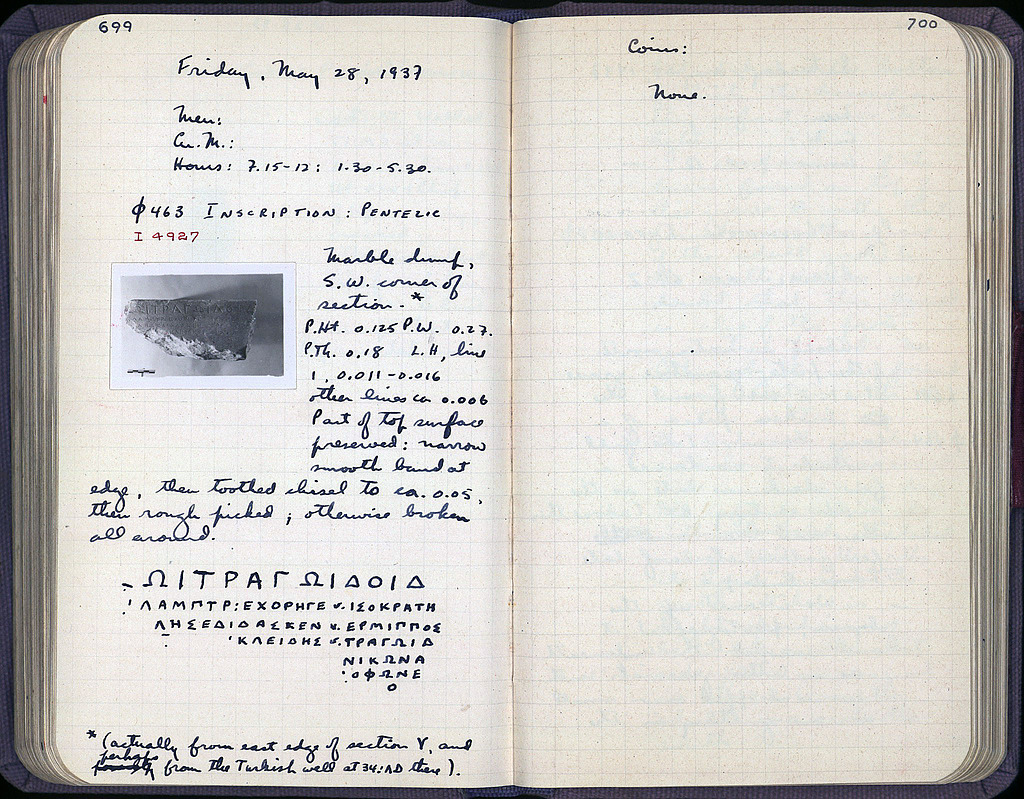 699
Friday, May 28, 1937
Men:
Cu. M.:
Hours: 7.15-12; 1.30-5.30.
φ463 INSCRIPTION: PENTELIC
I 4927
Marble dump,
S.W. corner of
section.*
P.Ht. 0.125 P.W. 0.27.
P.Th. 0.18 L.H, line
1, 0.011-0.016
other lines ca 0.006
Part of top surface
preserved: narrow
smooth band at
edge, then toothed chisel to ca. 0.05,
then rough picked; otherwise broken
all around.
ΩΙΤΡΑΓΩΙΔΟΙΔ
ΛΑΜΠΤΡ:ΕΧΟΡΗΓΕ v. ΙΣΟΚΡΑΤΗ
ΛΗΣΕΔΙΔΑΣΚΕΝ v. ΕΡΜΙΠΠΟΣ
ΚΛΕΙΔΗΣ v. ΤΡΑΓΩΙΔ
ΝΙΚΩΝΑ
ΟΦΩΝΕ
Ο
* (actually from east edge of section Y, and
perhaps
possibly from the Turkish well at 34:ΑΔ there).
700
Coins:
None.